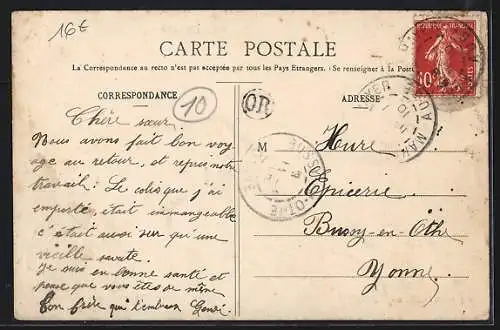 16€
CARTE POSTALE
La Correspondance au recto n'est pas acceptée par tous les Pays Etrangers. (Se renseigner à la Poste
CORRESPONDANCE
ADRESSE
10
OR
10
Chère sœur.
Nous avons fait bon voy
age au retour, et repris notre
travail: Le colis que j'ai
emporté, était immangeable
c'était aussi dur qu'une
vieille savate.
Je suis en bonne santé et
pense que vous êtes de même
Ton frère qui t'embrasse
M
Hure
Epicerie
Bussy-en-Othe
Yonne